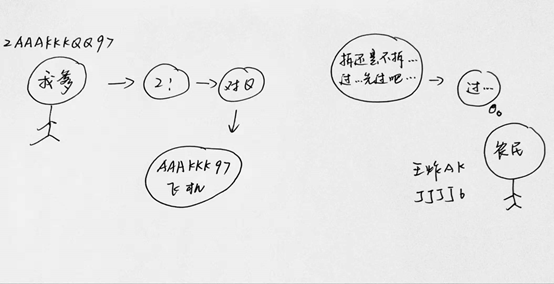 2AAAKKKQQ97
我爹
2!
对Q
AAAKKK97
飞机
拆还是不拆…
过…先过吧…
过…
农民
王炸AK
JJJJ6